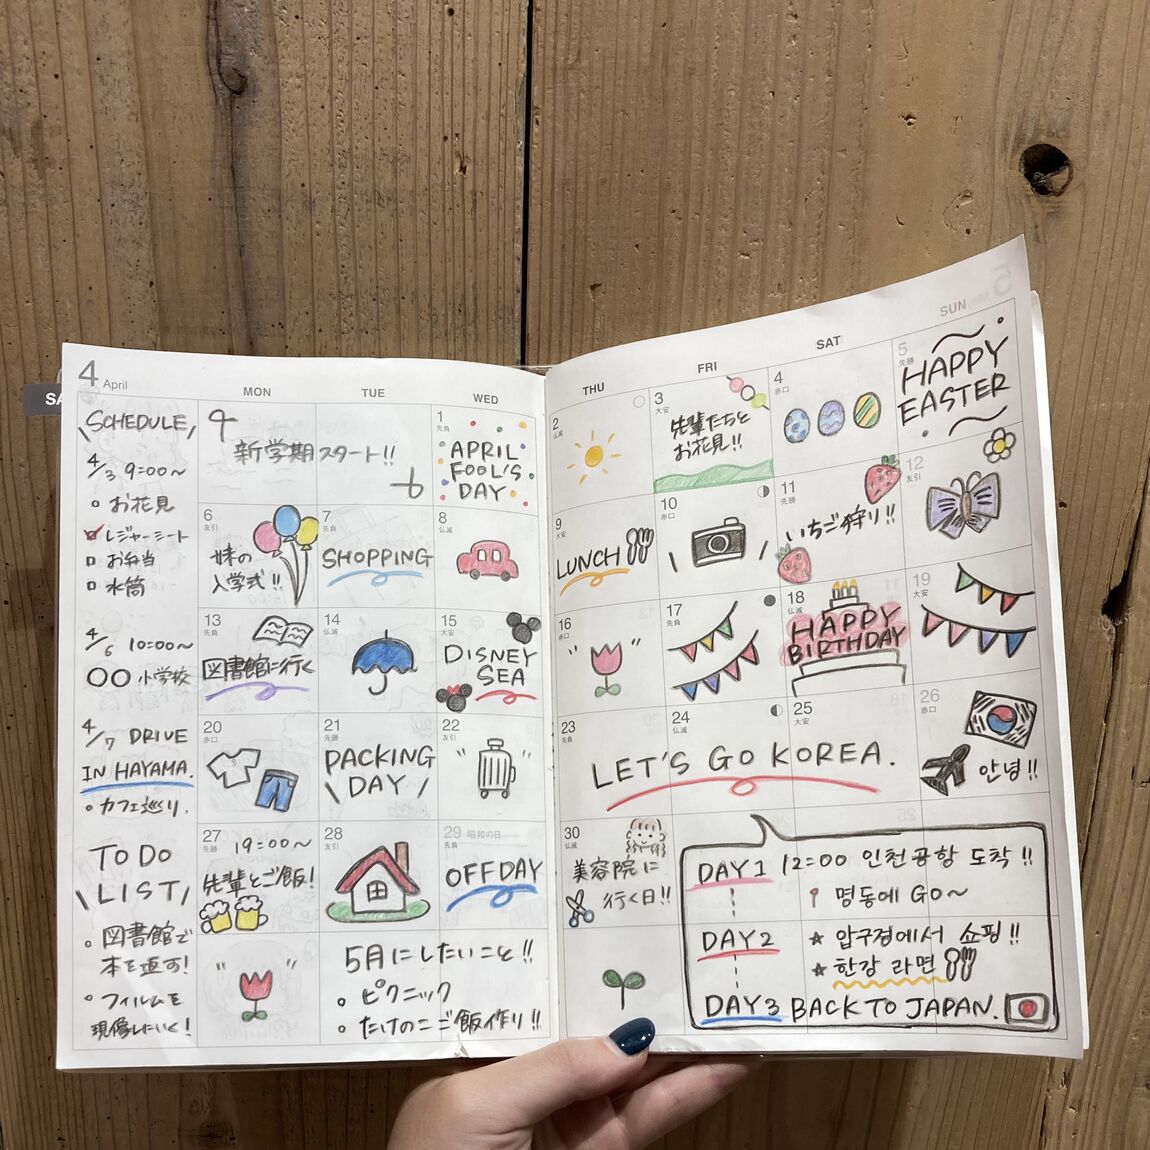 4 April
MON
TUE
WED
THU
FRI
SAT
SUN
SA
\SCHEDULE/
4/3 9:00〜
• お花見
レジャーシート
お弁当
水筒
4/6 10:00〜
○○小学校
4/7 DRIVE
IN HAYAMA.
• カフェ巡り.
TO DO
\LIST/
• 図書館で
本を返す!
• フィルムを
現像しにいく!
新学期スタート!!
1 先負
APRIL
FOOL'S
DAY
2 仏滅
3 大安
先輩たちと
お花見!!
4 赤口
5 先勝
HAPPY
EASTER
6 友引
妹の
入学式!!
7 先負
SHOPPING
8 仏滅
9 大安
LUNCH
10 赤口
11 先勝
いちご狩り!!
12 友引
13 先負
図書館に行く
14 仏滅
15 大安
DISNEY
SEA
16 赤口
17 先負
18 仏滅
HAPPY
BIRTHDAY
19 大安
20 赤口
21 先勝
PACKING
\DAY/
22 友引
23 先負
24 仏滅
25 大安
LET'S GO KOREA.
26 赤口
안녕!!
27 先勝
19:00〜
先輩とご飯!
28 友引
29 先負 昭和の日
OFFDAY
30 仏滅
美容院に
行く日!!
5月にしたいこと!!
• ピクニック
• たけのこご飯作り!!
DAY1 12:00 인천공항 도착!!
명동에 GO~
DAY2 ★ 압구정에서 쇼핑!!
★ 한강 라면
DAY3 BACK TO JAPAN.